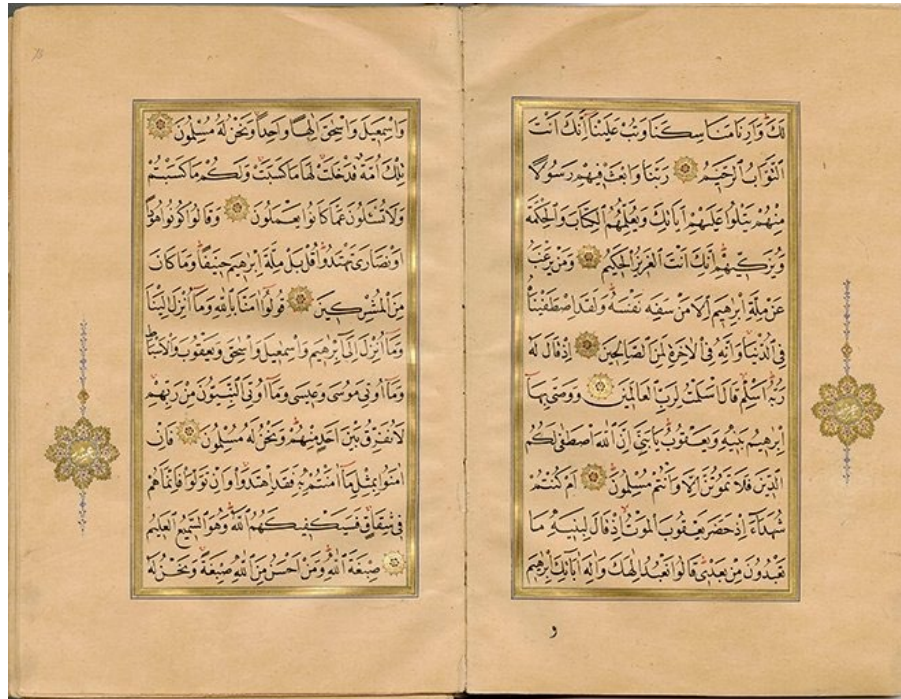 لَكَ وَاَرِنَا مَنَاسِكَنَا وَتُبْ عَلَيْنَا اِنَّكَ اَنْتَ
التَّوَّابُ الرَّحٖيمُ رَبَّنَا وَابْعَثْ فٖيهِمْ رَسُولًا
مِنْهُمْ يَتْلُوا عَلَيْهِمْ اٰيَاتِكَ وَيُعَلِّمُهُمُ الْكِتَابَ وَالْحِكْمَةَ
وَيُزَكّٖيهِمْ اِنَّكَ اَنْتَ الْعَزٖيزُ الْحَكٖيمُ وَمَنْ يَرْغَبُ
عَنْ مِلَّةِ اِبْرٰهٖيمَ اِلَّا مَنْ سَفِهَ نَفْسَهُ وَلَقَدِ اصْطَفَيْنَاهُ
فِى الدُّنْيَا وَاِنَّهُ فِى الْاٰخِرَةِ لَمِنَ الصَّالِحٖينَ اِذْ قَالَ لَهُ
رَبُّهُ اَسْلِمْ قَالَ اَسْلَمْتُ لِرَبِّ الْعَالَمٖينَ وَوَصّٰى بِهَا
اِبْرٰهٖيمُ بَنٖيهِ وَيَعْقُوبُ يَا بَنِىَّ اِنَّ اللّٰهَ اصْطَفٰى لَكُمُ
الدّٖينَ فَلَا تَمُوتُنَّ اِلَّا وَاَنْتُمْ مُسْلِمُونَ اَمْ كُنْتُمْ
شُهَدَاءَ اِذْ حَضَرَ يَعْقُوبَ الْمَوْتُ اِذْ قَالَ لِبَنٖيهِ مَا
تَعْبُدُونَ مِنْ بَعْدٖى قَالُوا نَعْبُدُ اِلٰهَكَ وَاِلٰهَ اٰبَائِكَ اِبْرٰهٖيمَ
و
وَاِسْمٰعٖيلَ وَاِسْحٰقَ اِلٰهًا وَاحِدًا وَنَحْنُ لَهُ مُسْلِمُونَ
تِلْكَ اُمَّةٌ قَدْ خَلَتْ لَهَا مَا كَسَبَتْ وَلَكُمْ مَا كَسَبْتُمْ
وَلَا تُسْـَٔلُونَ عَمَّا كَانُوا يَعْمَلُونَ وَقَالُوا كُونُوا هُودًا
اَوْ نَصَارٰى تَهْتَدُوا قُلْ بَلْ مِلَّةَ اِبْرٰهٖيمَ حَنٖيفًا وَمَا كَانَ
مِنَ الْمُشْرِكٖينَ قُولُوا اٰمَنَّا بِاللّٰهِ وَمَا اُنْزِلَ اِلَيْنَا
وَمَا اُنْزِلَ اِلٰى اِبْرٰهٖيمَ وَاِسْمٰعٖيلَ وَاِسْحٰقَ وَيَعْقُوبَ وَالْاَسْبَاطِ
وَمَا اُوتِىَ مُوسٰى وَعٖيسٰى وَمَا اُوتِىَ النَّبِيُّونَ مِنْ رَبِّهِمْ
لَا نُفَرِّقُ بَيْنَ اَحَدٍ مِنْهُمْ وَنَحْنُ لَهُ مُسْلِمُونَ فَاِنْ
اٰمَنُوا بِمِثْلِ مَا اٰمَنْتُمْ بِهٖ فَقَدِ اهْتَدَوْا وَاِنْ تَوَلَّوْا فَاِنَّمَا هُمْ
فٖى شِقَاقٍ فَسَيَكْفٖيكَهُمُ اللّٰهُ وَهُوَ السَّمٖيعُ الْعَلٖيمُ
صِبْغَةَ اللّٰهِ وَمَنْ اَحْسَنُ مِنَ اللّٰهِ صِبْغَةً وَنَحْنُ لَهُ